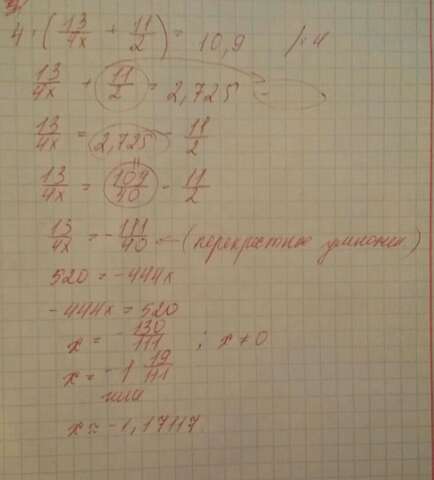 4 · (13/4x + 11/2) = 10,9 /:4
13/4x + 11/2 = 2,725 -
13/4x = 2,725 - 11/2
13/4x = 109/40 - 11/2
13/4x = -111/40 ← (перекрестное умножен.)
520 = -444x
-444x = 520
x = -130/111 ; x ≠ 0
x = -1 19/111
или
x ≈ -1,17117